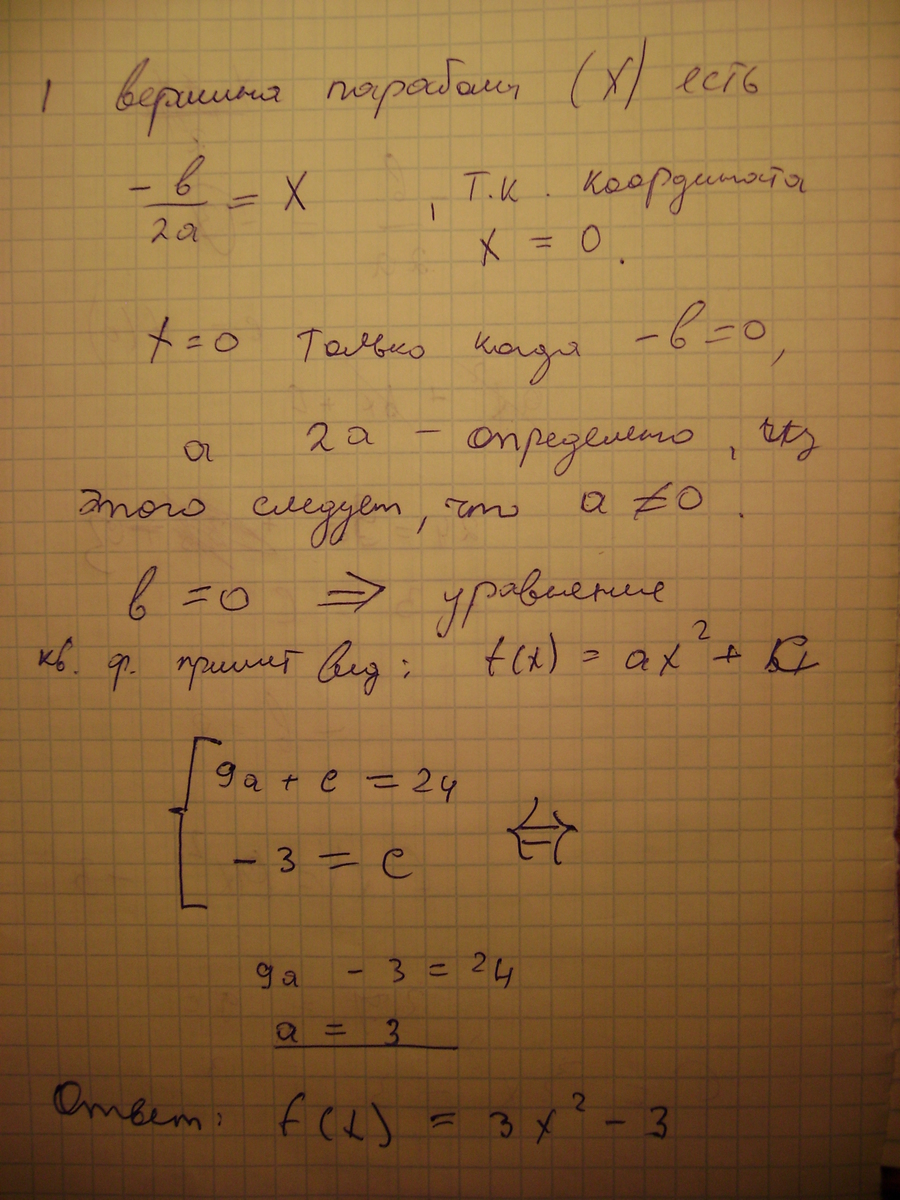 1 вершина параболы (X) есть
-в/2a = X , т.к. координата
X = 0.
X = 0 только когда -в = 0,
а 2a - определено, из
этого следует, что a ≠ 0.
в = 0 ⇒ уравнение
кв. ф. примет вид: f(x) = ax² + c
{ 9a + c = 24
-3 = c ⇔
9a - 3 = 24
a = 3
Ответ: f(x) = 3x² - 3